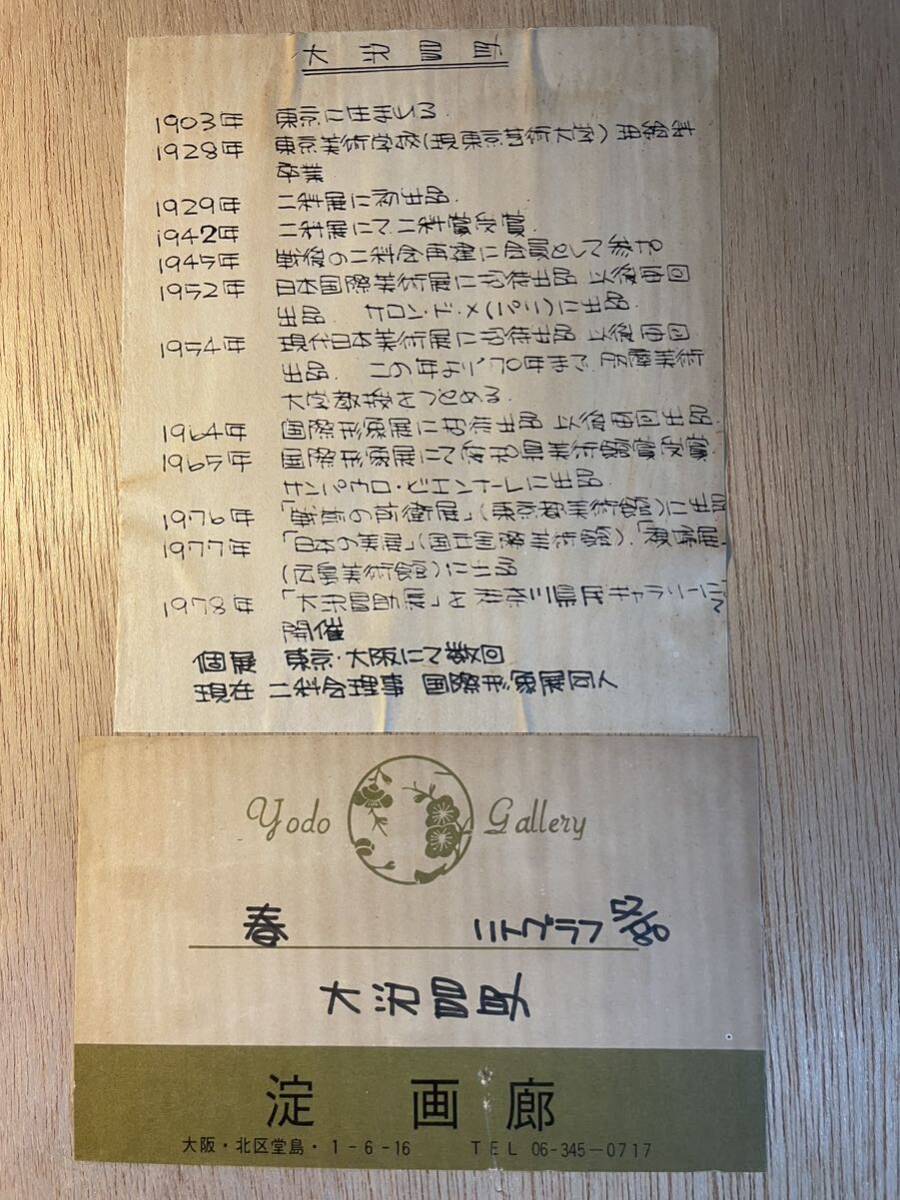 大沢昌助
1903年 東京に生まれる
1928年 東京美術学校(現東京芸術大学)油絵科
卒業
1929年 二科展に初出品.
1942年 二科展にて二科賞受賞.
1945年 戦後の二科会再建に会員として参加
1952年 日本国際美術展に招待出品 以後毎回
出品. サロン・ド・メ(パリ)に出品.
1954年 現代日本美術展に招待出品 以後毎回
出品. この年より、70年まで 多摩美術
大学教授をつとめる.
1964年 国際形象展に招待出品 以後毎回出品.
1965年 国際形象展にて愛知県美術館賞受賞.
サンパウロ・ビエンナーレに出品.
1976年 「戦前の前衛展」(東京都美術館)に出品
1977年 「日本の美展」(国立国際美術館).
(広島美術館)に出品
1978年 「大沢昌助展」を神奈川県民ギャラリーにて
開催
個展 東京・大阪にて数回
現在 二科会理事 国際形象展同人
Yodo Gallery
春 リトグラフ 57/80
大沢昌助
淀画廊
大阪・北区堂島・1-6-16 TEL 06-345-0717